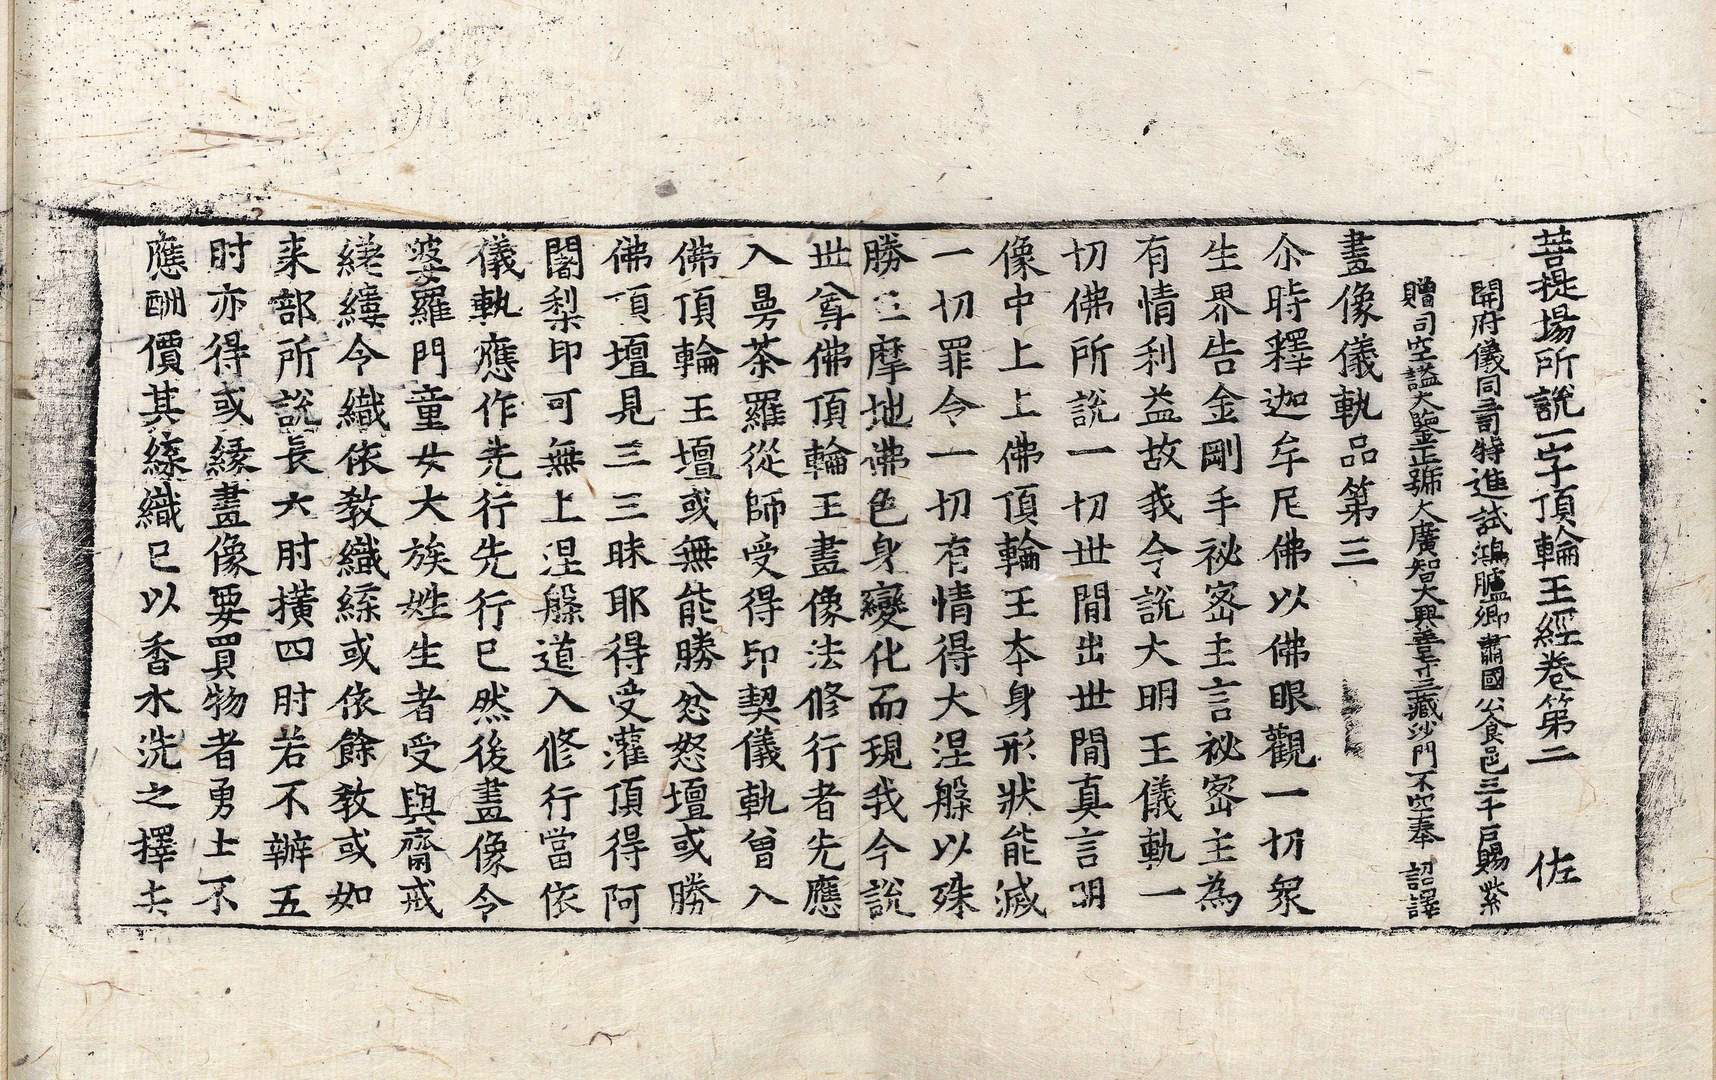 菩提場所說一字頂輪王經卷第二　佐
開府儀同三司特進試鴻臚卿肅國公食邑三千戶賜紫
贈司空謚大鑒正號大廣智大興善寺三藏沙門不空奉　詔譯
畫像儀軌品第三
尒時釋迦牟尼佛以佛眼觀一切衆
生界告金剛手祕密主言祕密主為
有情利益故我今說大明王儀軌一
切佛所說一切世間出世間真言明
像中上上佛頂輪王本身形狀能滅
一切罪令一切有情得大涅槃以殊
勝三摩地佛色身變化而現我今說
世尊佛頂輪王畫像法修行者先應
入曼荼羅從師受得印契儀軌曾入
佛頂輪王壇或無能勝忿怒壇或勝
佛頂壇見三三昧耶得受灌頂得阿
闍梨印可無上涅槃道入修行當依
儀軌應作先行先行已然後畫像令
婆羅門童女大族姓生者受與齋戒
縒縷令織依教織絲或依餘教或如
来部所說長六肘橫四肘若不辦五
肘亦得或緣畫像要買物者勇士不
應酬價其絲織已以香水洗之擇去